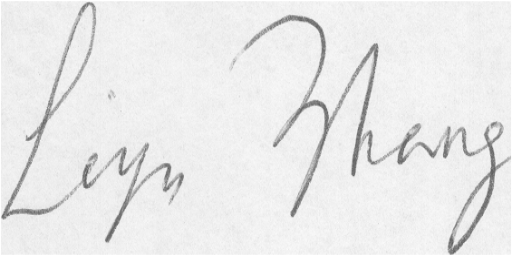 Liyu Zhang